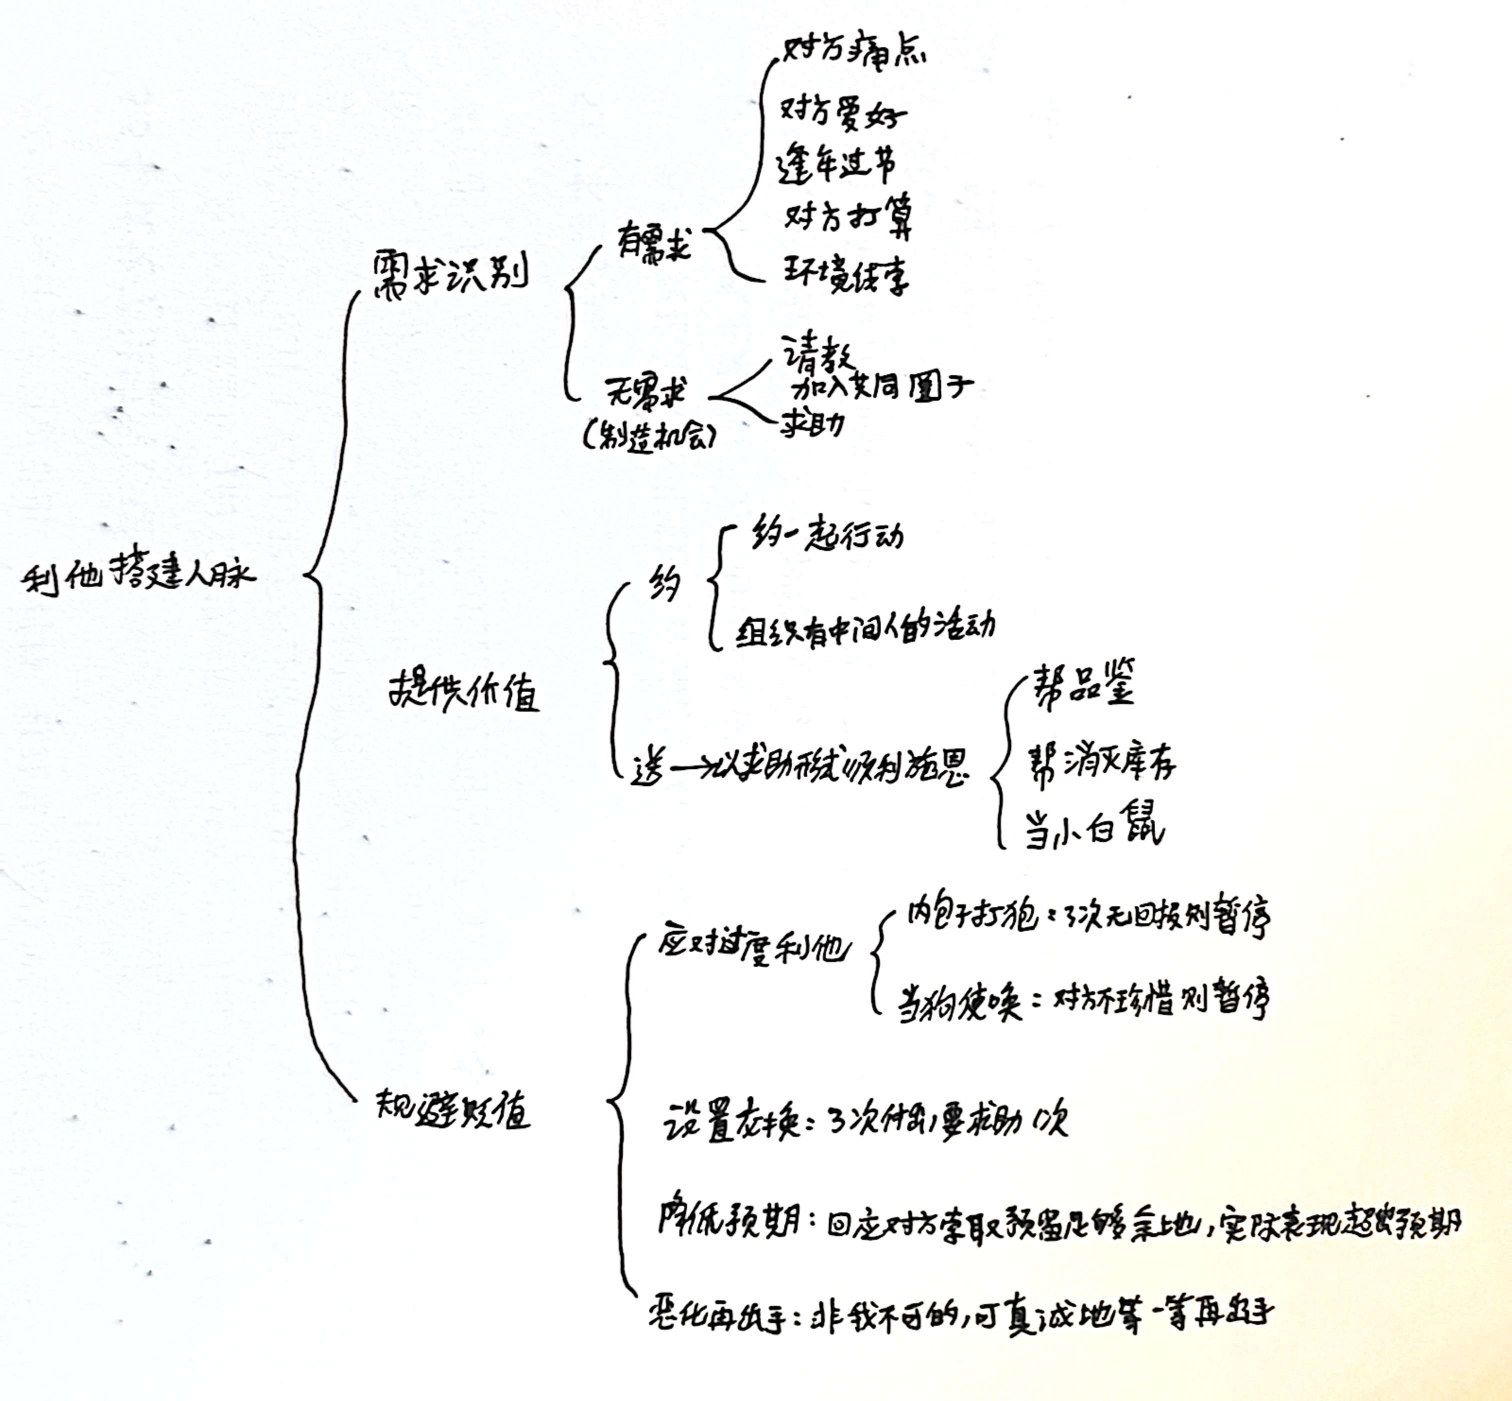 利他搭建人脉
需求识别
有需求
对方痛点
对方爱好
逢年过节
对方打算
环境线索
无需求
(制造机会)
请教
加入共同圈子
求助
提供价值
约
约一起行动
组织有中间人的活动
送→以求助形式顺利施恩
帮品鉴
帮消灭库存
当小白鼠
规避贬值
应对过度利他
肉包子打狗:3次无回报则暂停
当狗使唤:对方不珍惜则暂停
设置交换:3次付出,要求助1次
降低预期:回应对方索取预留足够余地,实际表现超出预期
恶化再出手:非我不可的,可真诚地等一等再出手